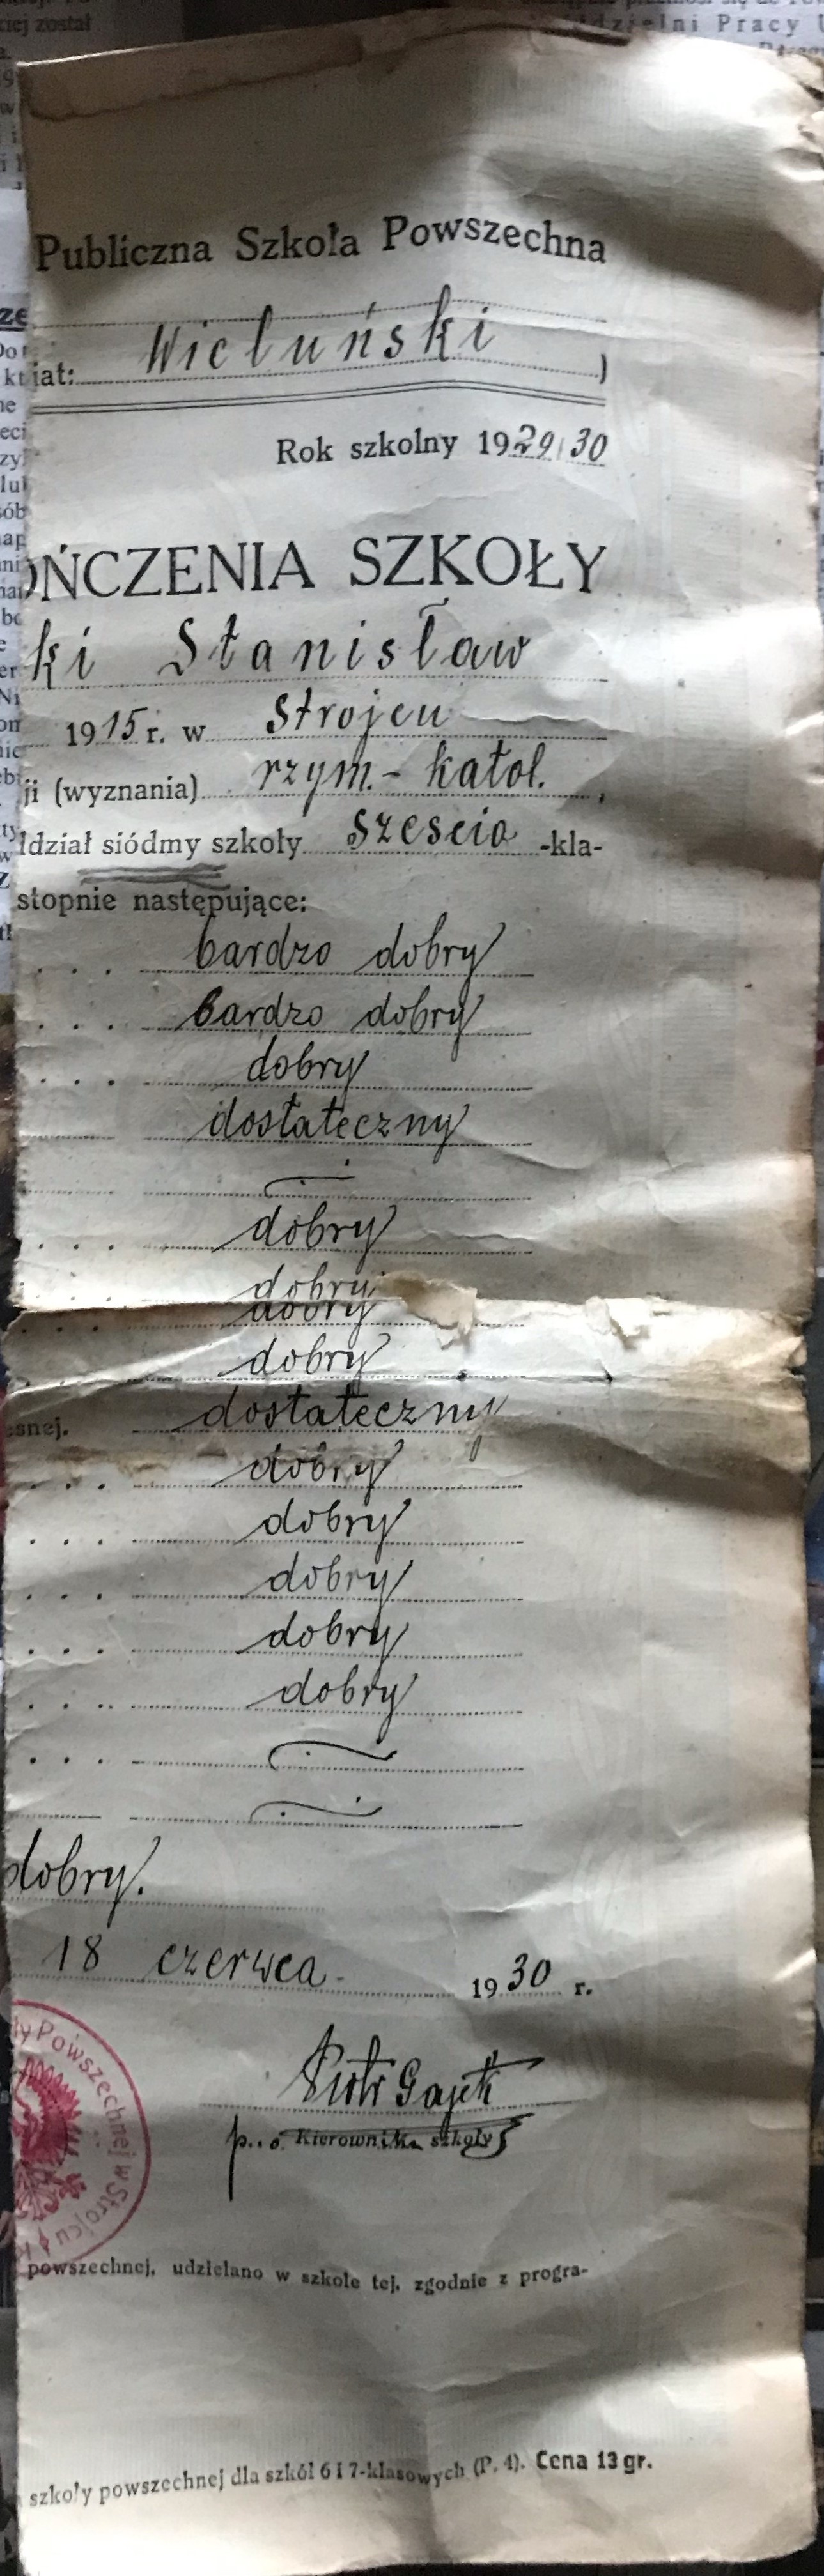 kiej został
dzielni Pracy
Publiczna Szkoła Powszechna
iat: Wieluński )
Rok szkolny 1929/30
OŃCZENIA SZKOŁY
ki Stanisław
1915 r. w Strojcu
ji (wyznania) rzym.-katol. ,
dział siódmy szkoły sześcio -kla-
stopnie następujące:
. . . bardzo dobry
. . . bardzo dobry
. . . dobry
dostateczny
. . . dobry
dobry
dobry
dobry
esnej. dostateczny
. . . dobry
. . . dobry
. . . dobry
. . . dobry
. . . dobry
dobry.
18 czerwca 1930 r.
ły Powszechnej w Strojcu
Piotr Gajek
p. o. Kierownika szkoły
powszechnej, udzielano w szkole tej, zgodnie z progra-
szkoły powszechnej dla szkół 6 i 7-klasowych (P. 4). Cena 13 gr.